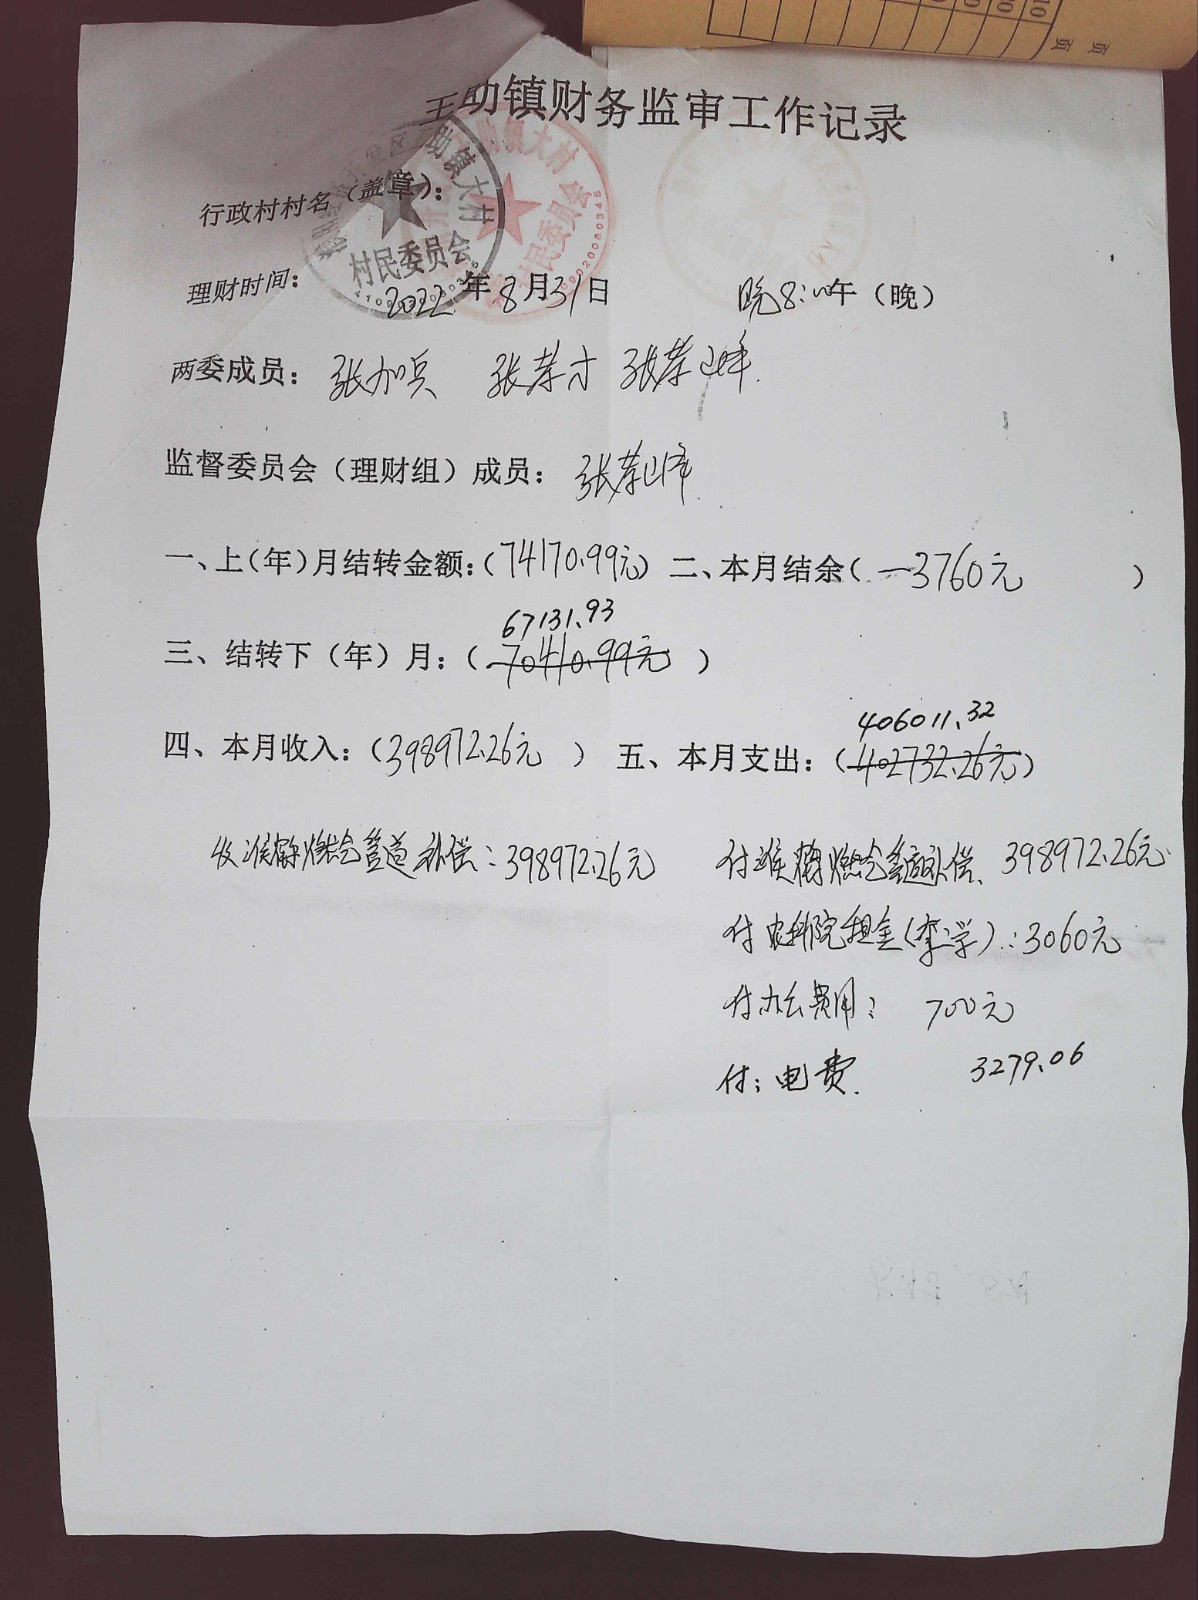 王助镇财务监审工作记录
行政村村名（盖章）：
助镇大村
村民委员会
助镇大村
村民委员会
理财时间： 2022年8月31日 晚8:00午（晚）
两委成员： 张加兵 张荣才 张荣峰
监督委员会（理财组）成员： 张荣峰
一、上（年）月结转金额：（74170.99元） 二、本月结余（ -3760元 ）
67131.93
三、结转下（年）月：（ 70410.99元 ）
406011.32
四、本月收入：（398972.26元 ） 五、本月支出：（402732.26元）
收 燃气管道补偿：398972.26元
付 燃气管道补偿、398972.26元
付农科院租金（李学）：3060元
付办公费用： 700元
付：电费. 3279.06